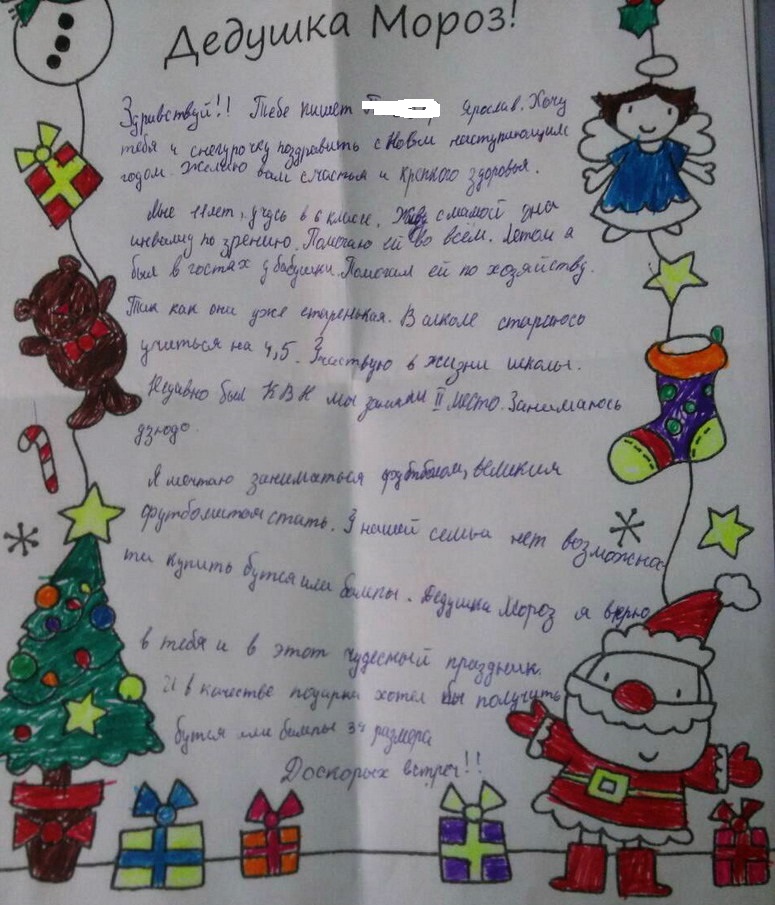 Дедушка Мороз!
Здравствуй!! Тебе пишет Ярослав. Хочу
тебя и снегурочку поздравить с Новым наступающим
годом. Желаю вам счастья и крепкого здоровья.
Мне 11 лет, учусь в 6 классе. Живу с мамой она
инвалид по зрению. Помогаю ей во всём. Летом я
был в гостях у бабушки. Помогал ей по хозяйству.
Так как они уже старенькая. В школе стараюсь
учиться на 4,5. Участвую в жизни школы.
Недавно был КВН мы заняли II место. Занимаюсь
дзюдо.
Я мечтаю заниматься футболом, великим
футболистом стать. У нашей семьи нет возможно-
ти купить бутся или бампы. Дедушка Мороз я верю
в тебя и в этот чудесный праздник.
И в качестве подарка хотел бы получить
бутся или бампы 34 размера
Доскорых встреч!!